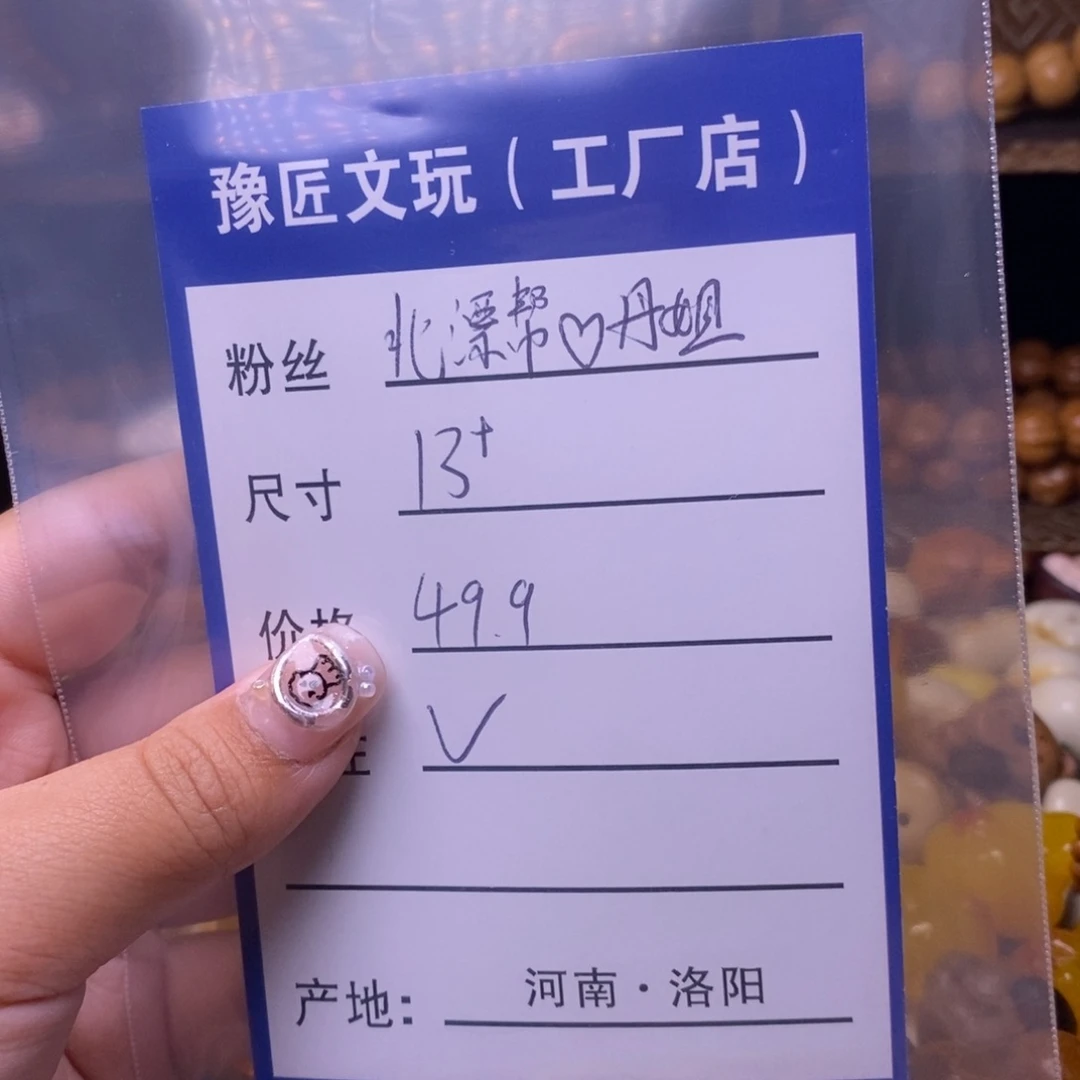 豫匠文玩（工厂店）
粉丝 北漂帮♡丹姐
尺寸 13+
价格 49.9
注 V
产地： 河南·洛阳